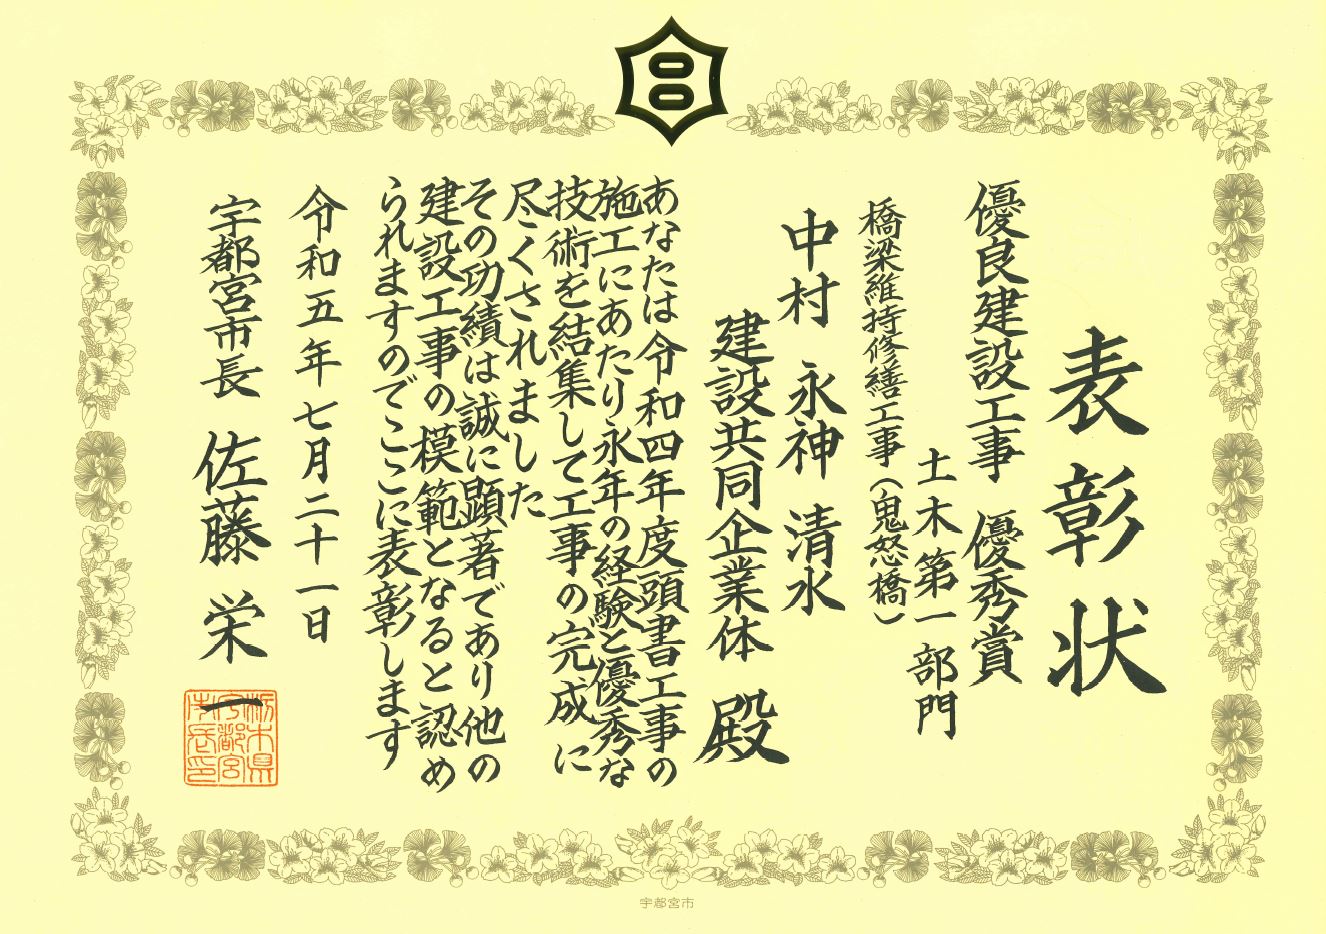 表彰状
優良建設工事 優秀賞
土木第一部門
橋梁維持修繕工事(鬼怒橋)
中村 永神 清水
建設共同企業体 殿
あなたは令和四年度頭書工事の
施工にあたり永年の経験と優秀な
技術を結集して工事の完成に
尽くされました
その功績は誠に顕著であり他の
建設工事の模範となると認め
られますのでここに表彰します
令和五年七月二十一日
宇都宮市長 佐藤栄一
栃木県
宇都宮
市長印
宇都宮市